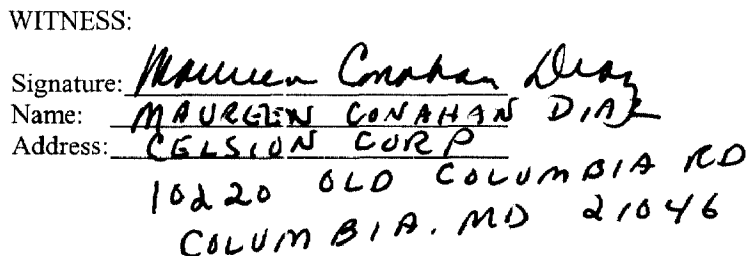 WITNESS:
Signature: Maureen Conahan Diaz
Name: MAUREEN CONAHAN DIAZ
Address: CELSION CORP
10220 OLD COLUMBIA RD
COLUMBIA, MD 21046